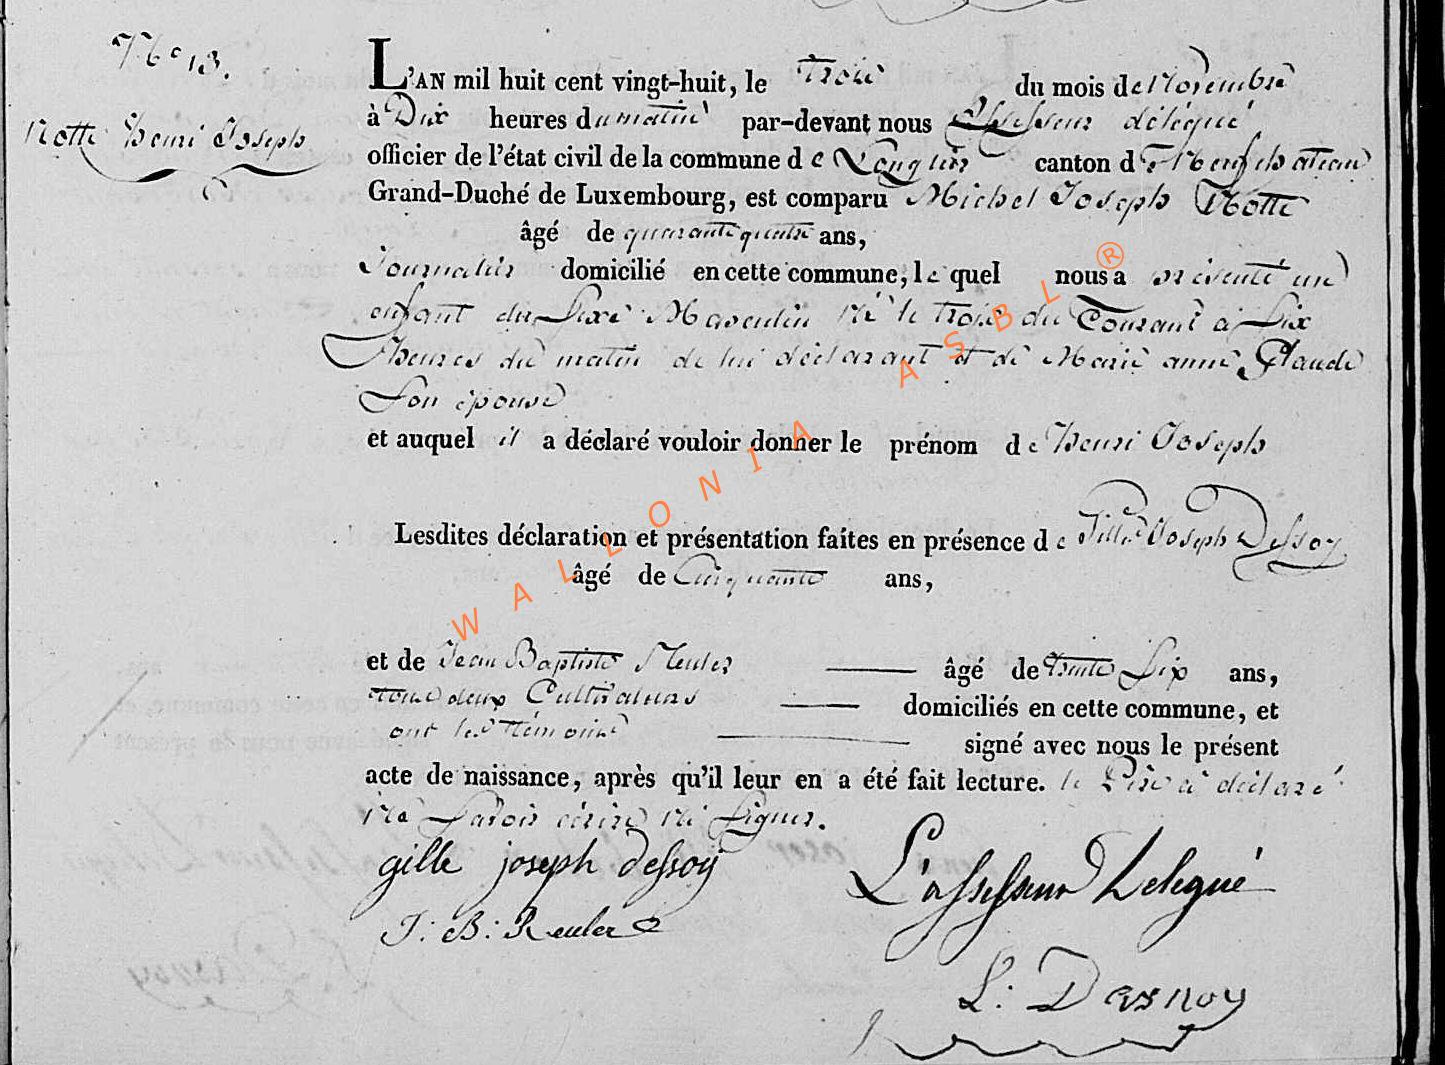 N.o 13.
Notte Henri Joseph
L'AN mil huit cent vingt-huit, le trois du mois de Novembre
à Dix heures du matin par-devant nous Assesseur délégué
officier de l'état civil de la commune de Longlier canton de Neufchateau
Grand-Duché de Luxembourg, est comparu Michel Joseph Notte
âgé de quarante quatre ans,
Journalier domicilié en cette commune, lequel nous a présenté un
enfant du Sexe Masculin Né le trois du Courant à Six
heures du matin de lui déclarant et de Marie anne Glaude
Son épouse
et auquel il a déclaré vouloir donner le prénom de Henri Joseph
Lesdites déclaration et présentation faites en présence de Gille Joseph Dessoy
âgé de Cinquante ans,
et de Jean Baptiste Reuler âgé de trente Six ans,
tous deux Cultivateurs domiciliés en cette commune, et
ont les témoins signé avec nous le présent
acte de naissance, après qu'il leur en a été fait lecture. le Père a déclaré
Ne Savoir écrire Ni Signer.
gille joseph dessoy
L'assesseur Delegué
J: B: Reuler
L: Dasnoy
WALLONIA ASBL ®